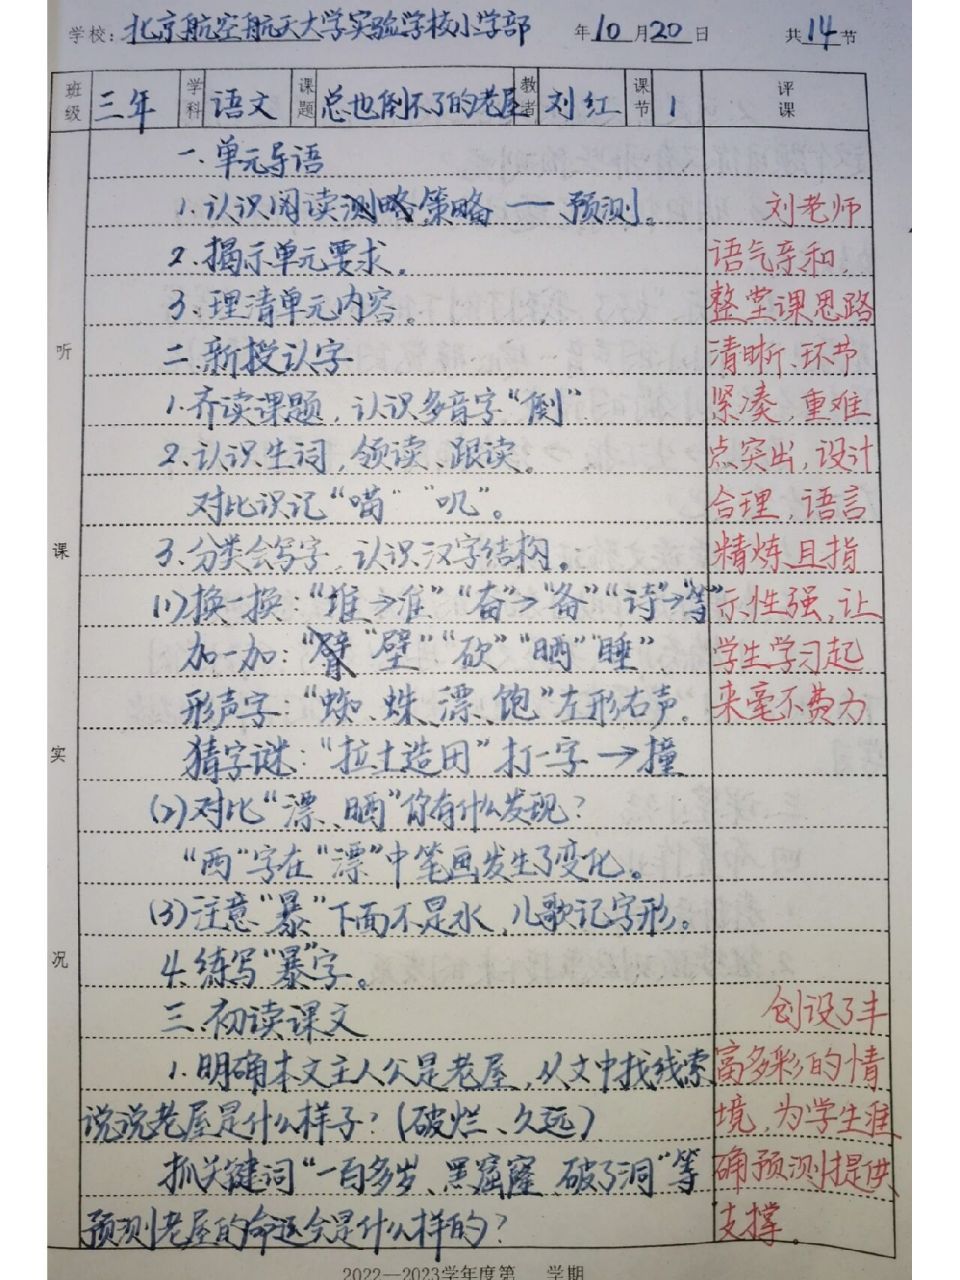 学校:北京航空航天大学实验学校小学部 年10月20日 共14节
班级 三年 学科 语文 课题 总也倒不了的老屋 教者 刘红 课节 1 评课
一.单元导语
1.认识阅读测略策略——预测。 刘老师
2.揭示单元要求。 语气亲和,
3.理清单元内容。 整堂课思路
听 二.新授认字 清晰、环节
1.齐读课题,认识多音字“倒” 紧凑,重难
2.认识生词,领读、跟读。 点突出,设计
对比识记“喵”“叽”。 合理,语言
课 3.分类会写字,认识汉字结构。 精炼且指
(1)换一换:“堆→准”“奋→备”“诗→等” 示性强,让
加一加:“臂”“壁”“砍”“晒”“睡” 学生学习起
形声字:“蜘、蛛、漂、饱”左形右声。 来毫不费力
实 猜字谜:“拉土造田”打一字→撞
(2)对比“漂、晒”你有什么发现?
“西”字在“漂”中笔画发生了变化。
(3)注意“暴”下面不是水,儿歌记字形。
况 4.练写“暴”字。
三.初读课文 创设了丰
1.明确本文主人公是老屋,从文中找线索 富多彩的情
说说老屋是什么样子?(破烂、久远) 境,为学生准
抓关键词“一百多岁、黑窟窿、破了洞”等 确预测提供
预测老屋的命运会是什么样的? 支撑。
2022—2023学年度第 学期